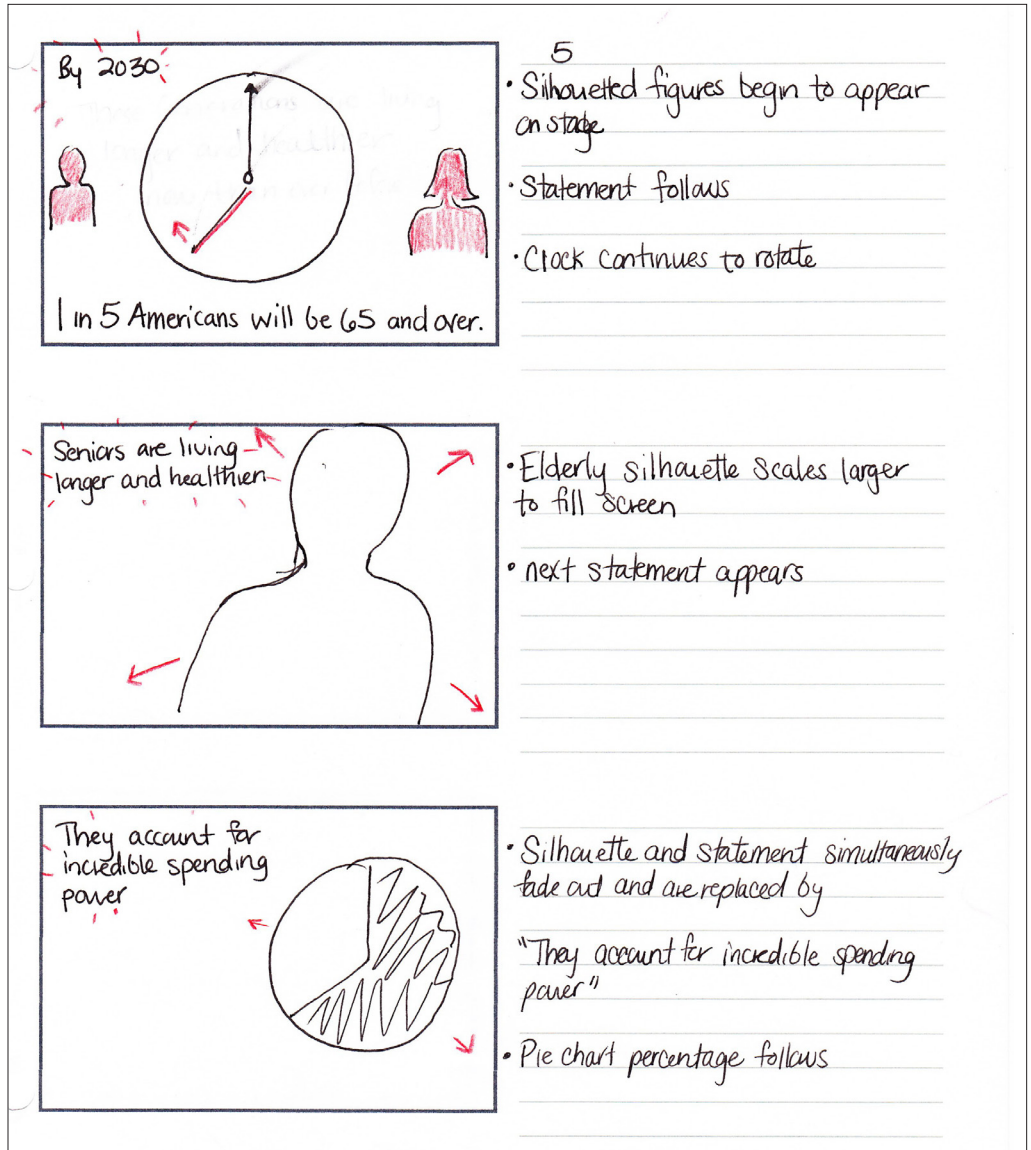 By 2030
1 in 5 Americans will be 65 and over.
5
• Silhouetted figures begin to appear
on stage
• Statement follows
• Clock continues to rotate
Seniors are living
longer and healthier
• Elderly silhouette scales larger
to fill screen
• next statement appears
They account for
incredible spending
power
• Silhouette and statement simultaneously
fade out and are replaced by
"They account for incredible spending
power"
• Pie chart percentage follows